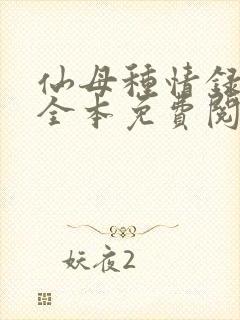 仙母種情録
全本免費閱
妖夜2